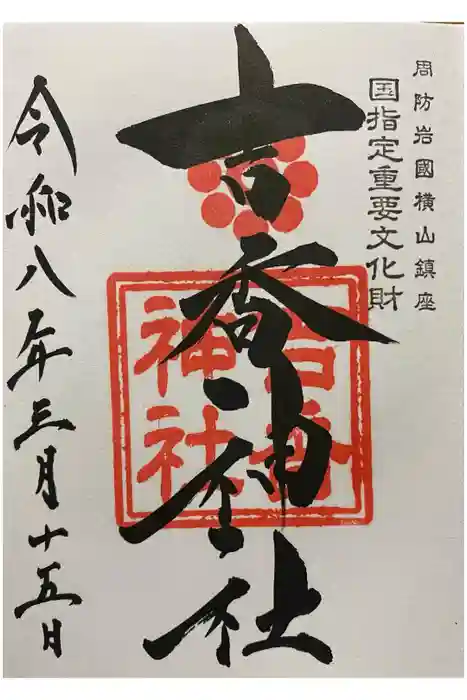 周防岩國横山鎮座
国指定重要文化財
吉香神社
吉香
神社
令和八年三月十五日